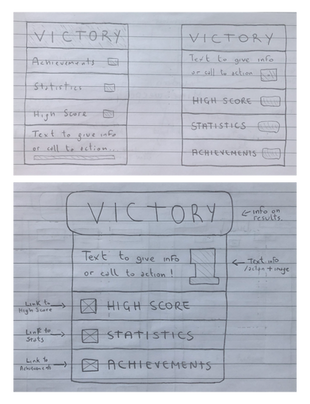 VICTORY
Achievements
Statistics
High Score
Text to give info
or call to action...
VICTORY
Text to give info
or call to action
HIGH SCORE
STATISTICS
ACHIEVEMENTS
VICTORY
Info on
results.
Text to give info
or call to action!
Text info
/ + image
Link to
High Score
HIGH SCORE
Link to
Stats
STATISTICS
Link to
ACHIEVEMENTS